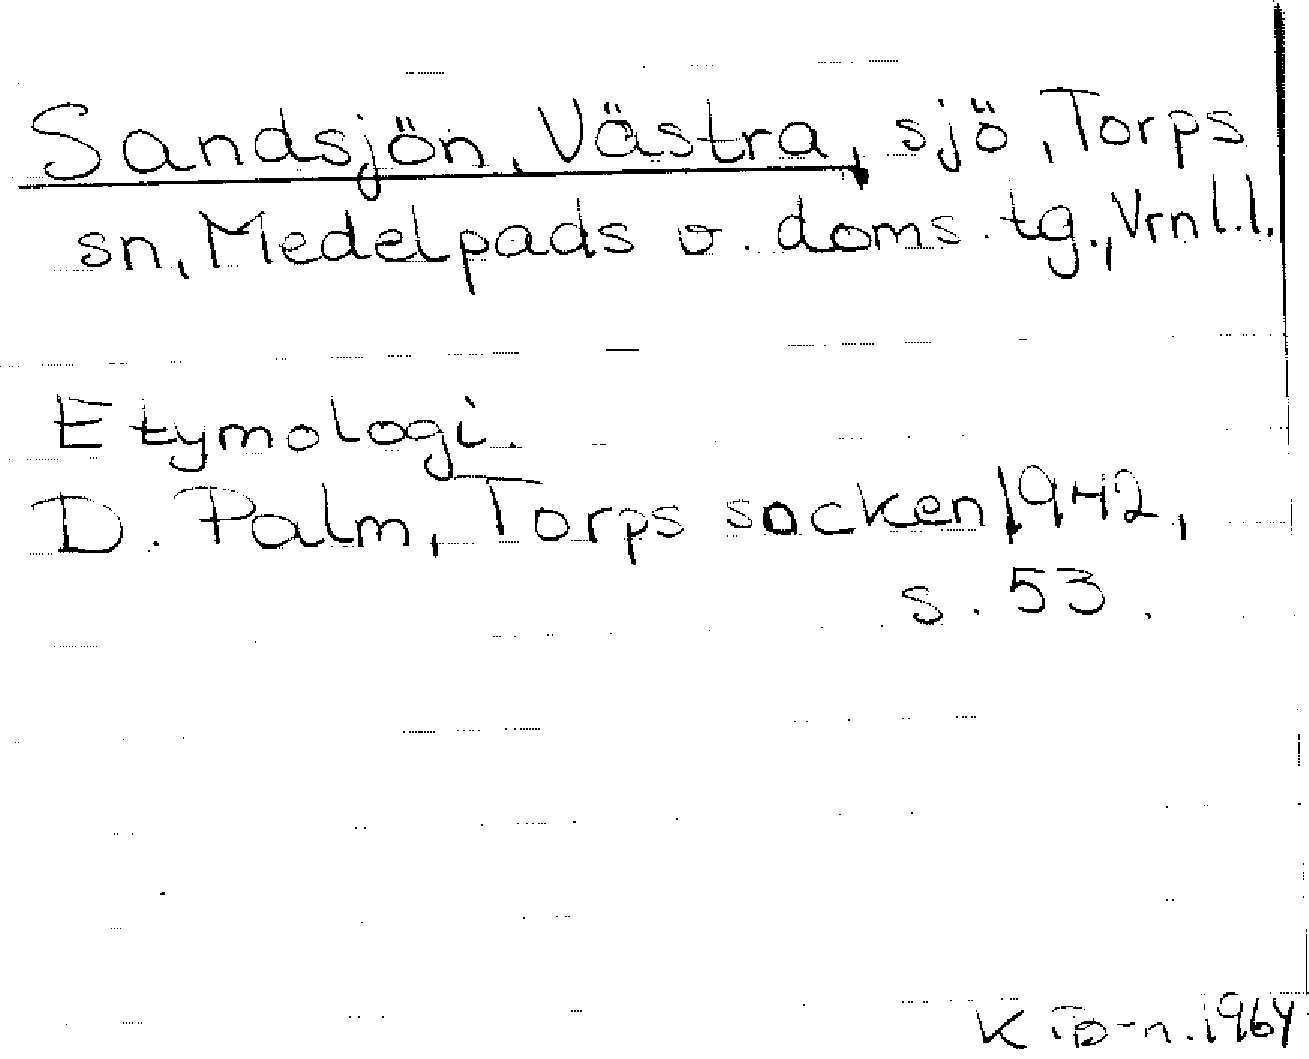 Sandsjön, Västra, sjö, Torps
sn, Medelpads v. doms. tg., Vrnl.l.
Etymologi.
D. Palm, Torps socken 1942,
s. 53.
1964